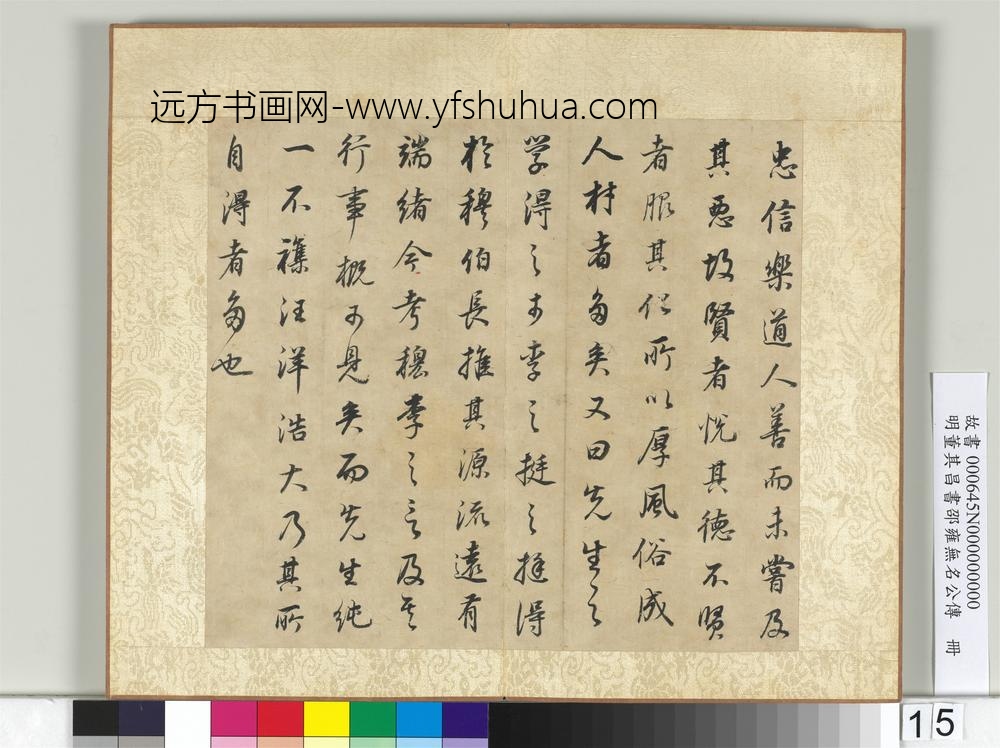 远方书画网-www.yfshuhua.com
忠信樂道人善而未嘗及
其惡故賢者悦其德不賢
者服其化所以厚風俗成
人材者多矣又曰先生之
学得之于李之挺之挺得
於穆伯長推其源流遠有
端緒今考穆李之言及其
行事概可見矣而先生純
一不襍汪洋浩大乃其所
自得者多也
故書 000645N000000000
明董其昌書邵雍無名公傳 冊
15